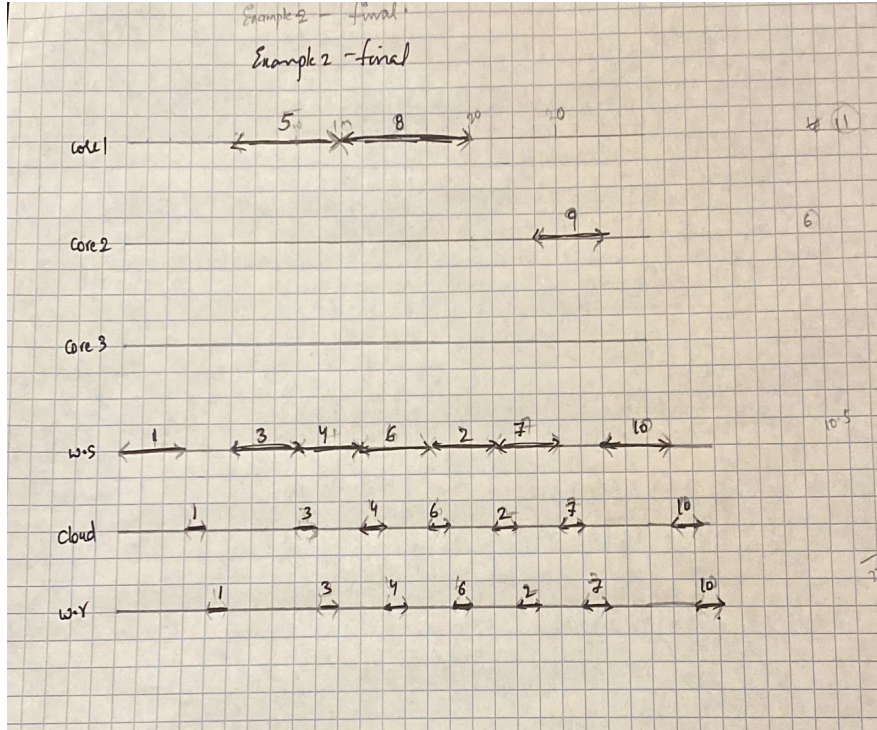 Example 2 - final.
Example 2 - final
Core 1 5 8 20 20 11
Core 2 9 6
Core 3
W.S 1 3 4 6 2 7 10 10.5
Cloud 1 3 4 6 2 7 10
W.r 1 3 4 6 2 7 10